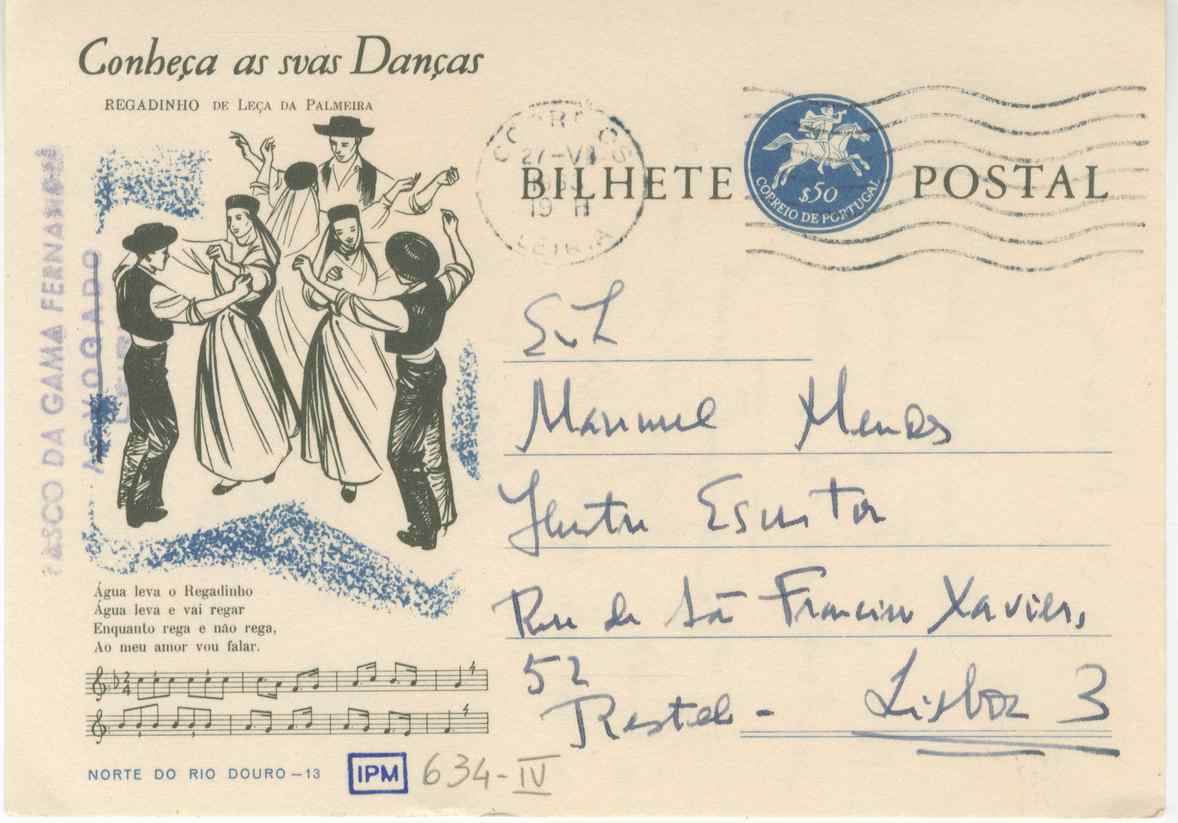 Conheça as svas Danças
REGADINHO DE LEÇA DA PALMEIRA
CORREIOS
27-VI
19 H
LEIRIA
BILHETE POSTAL
$50
CORREIO DE PORTUGAL
VASCO DA GAMA FERNANDES
ADVOGADO
LEIRIA
Manuel Mendes
Ilustre Escritor
Rua de São Francisco Xavier,
52
Restelo - Lisboa 3
Água leva o Regadinho
Água leva e vai regar
Enquanto rega e não rega,
Ao meu amor vou falar.
NORTE DO RIO DOURO – 13
IPM 634-IV